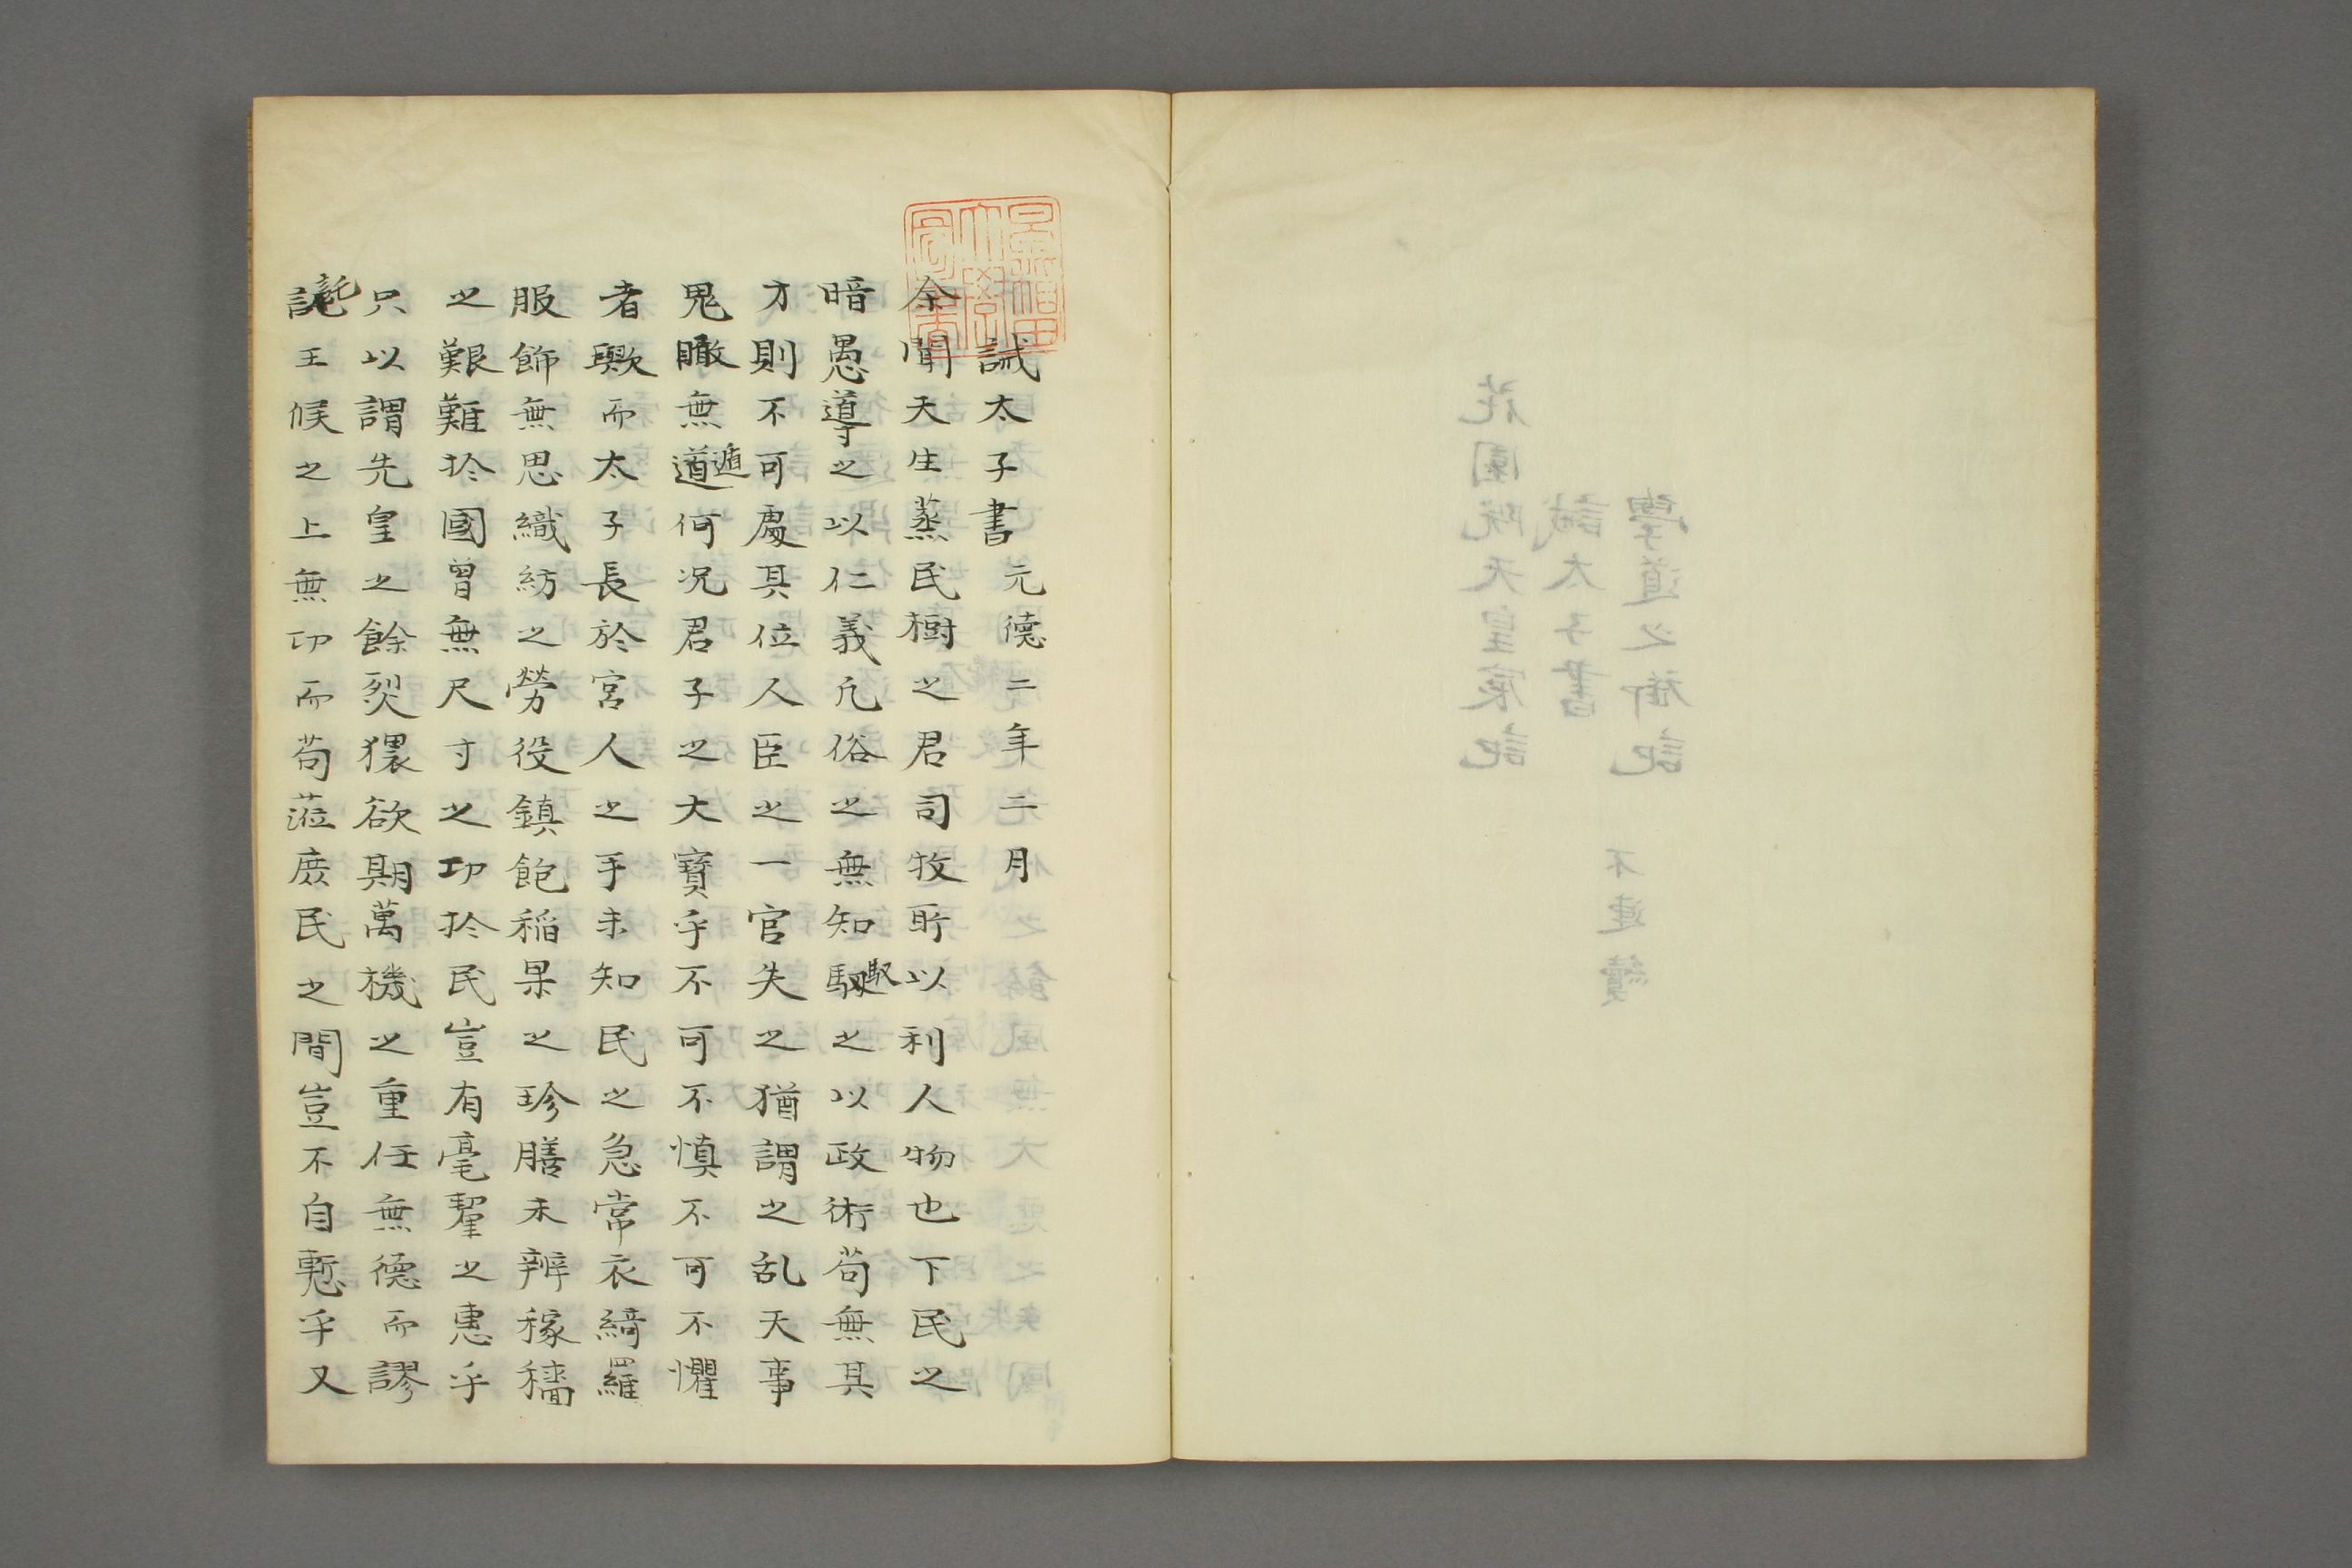 誡太子書 元德二年二月
余聞天生蒸民樹之君司牧所以利人物也下民之
暗愚導之以仁義凡俗之無知馭之以政術苟無其
馭
才則不可處其位人臣之一官失之猶謂之乱天事
鬼瞰無遁何況君子之大寶乎不可不慎不可不懼
遁
者歟而太子長於宮人之手未知民之急常衣綺羅
服飾無思織紡之勞役鎮飽稻粱之珍膳未辨稼穡
之艱難於國曾無尺寸之功於民豈有毫氂之惠乎
只以謂先皇之餘烈猥欲期萬機之重任無德而謬
託王侯之上無功而苟莅庶民之間豈不自慙乎又
託
學道之御記 不連續
誡太子書
花園院天皇宸記